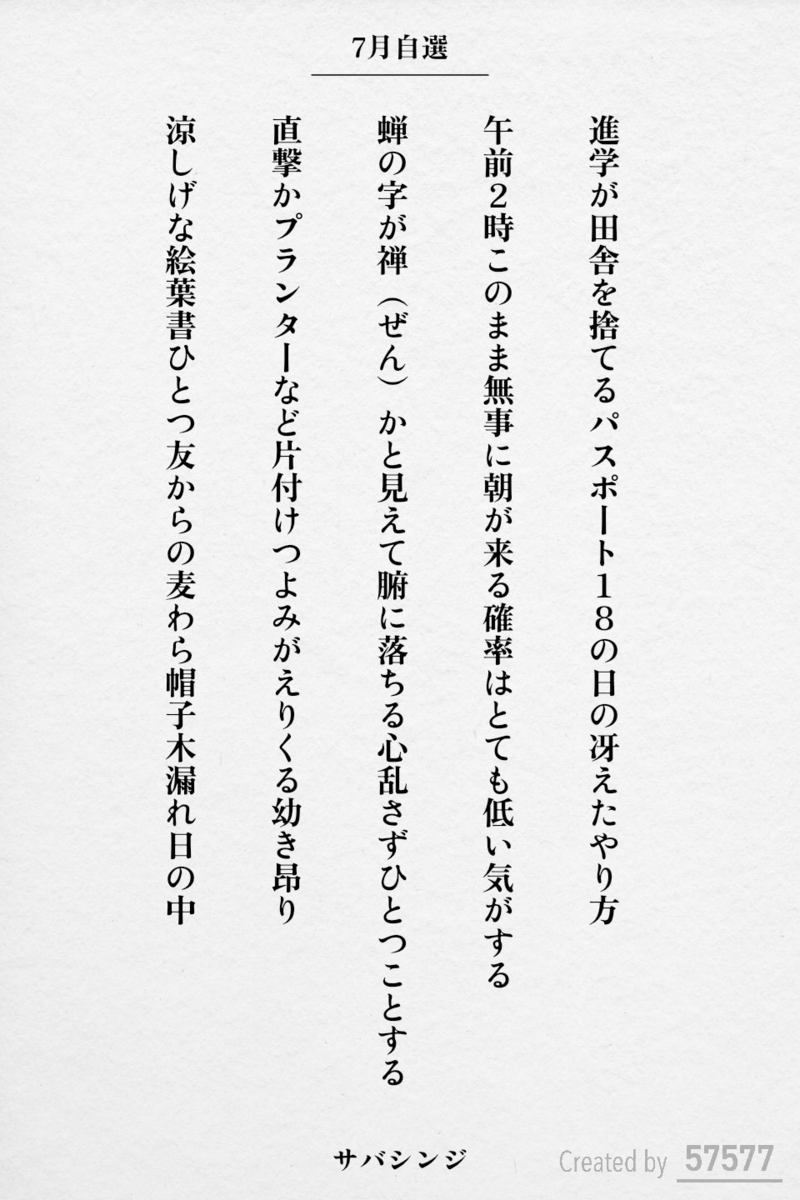 7月自選
進学が田舎を捨てるパスポート18の日の冴えたやり方
午前2時このまま無事に朝が来る確率はとても低い気がする
蝉の字が禅（ぜん）かと見えて腑に落ちる心乱さずひとつことする
直撃かプランターなど片付けつよみがえりくる幼き昂り
涼しげな絵葉書ひとつ友からの麦わら帽子木漏れ日の中
サバシンジ
Created by 57577